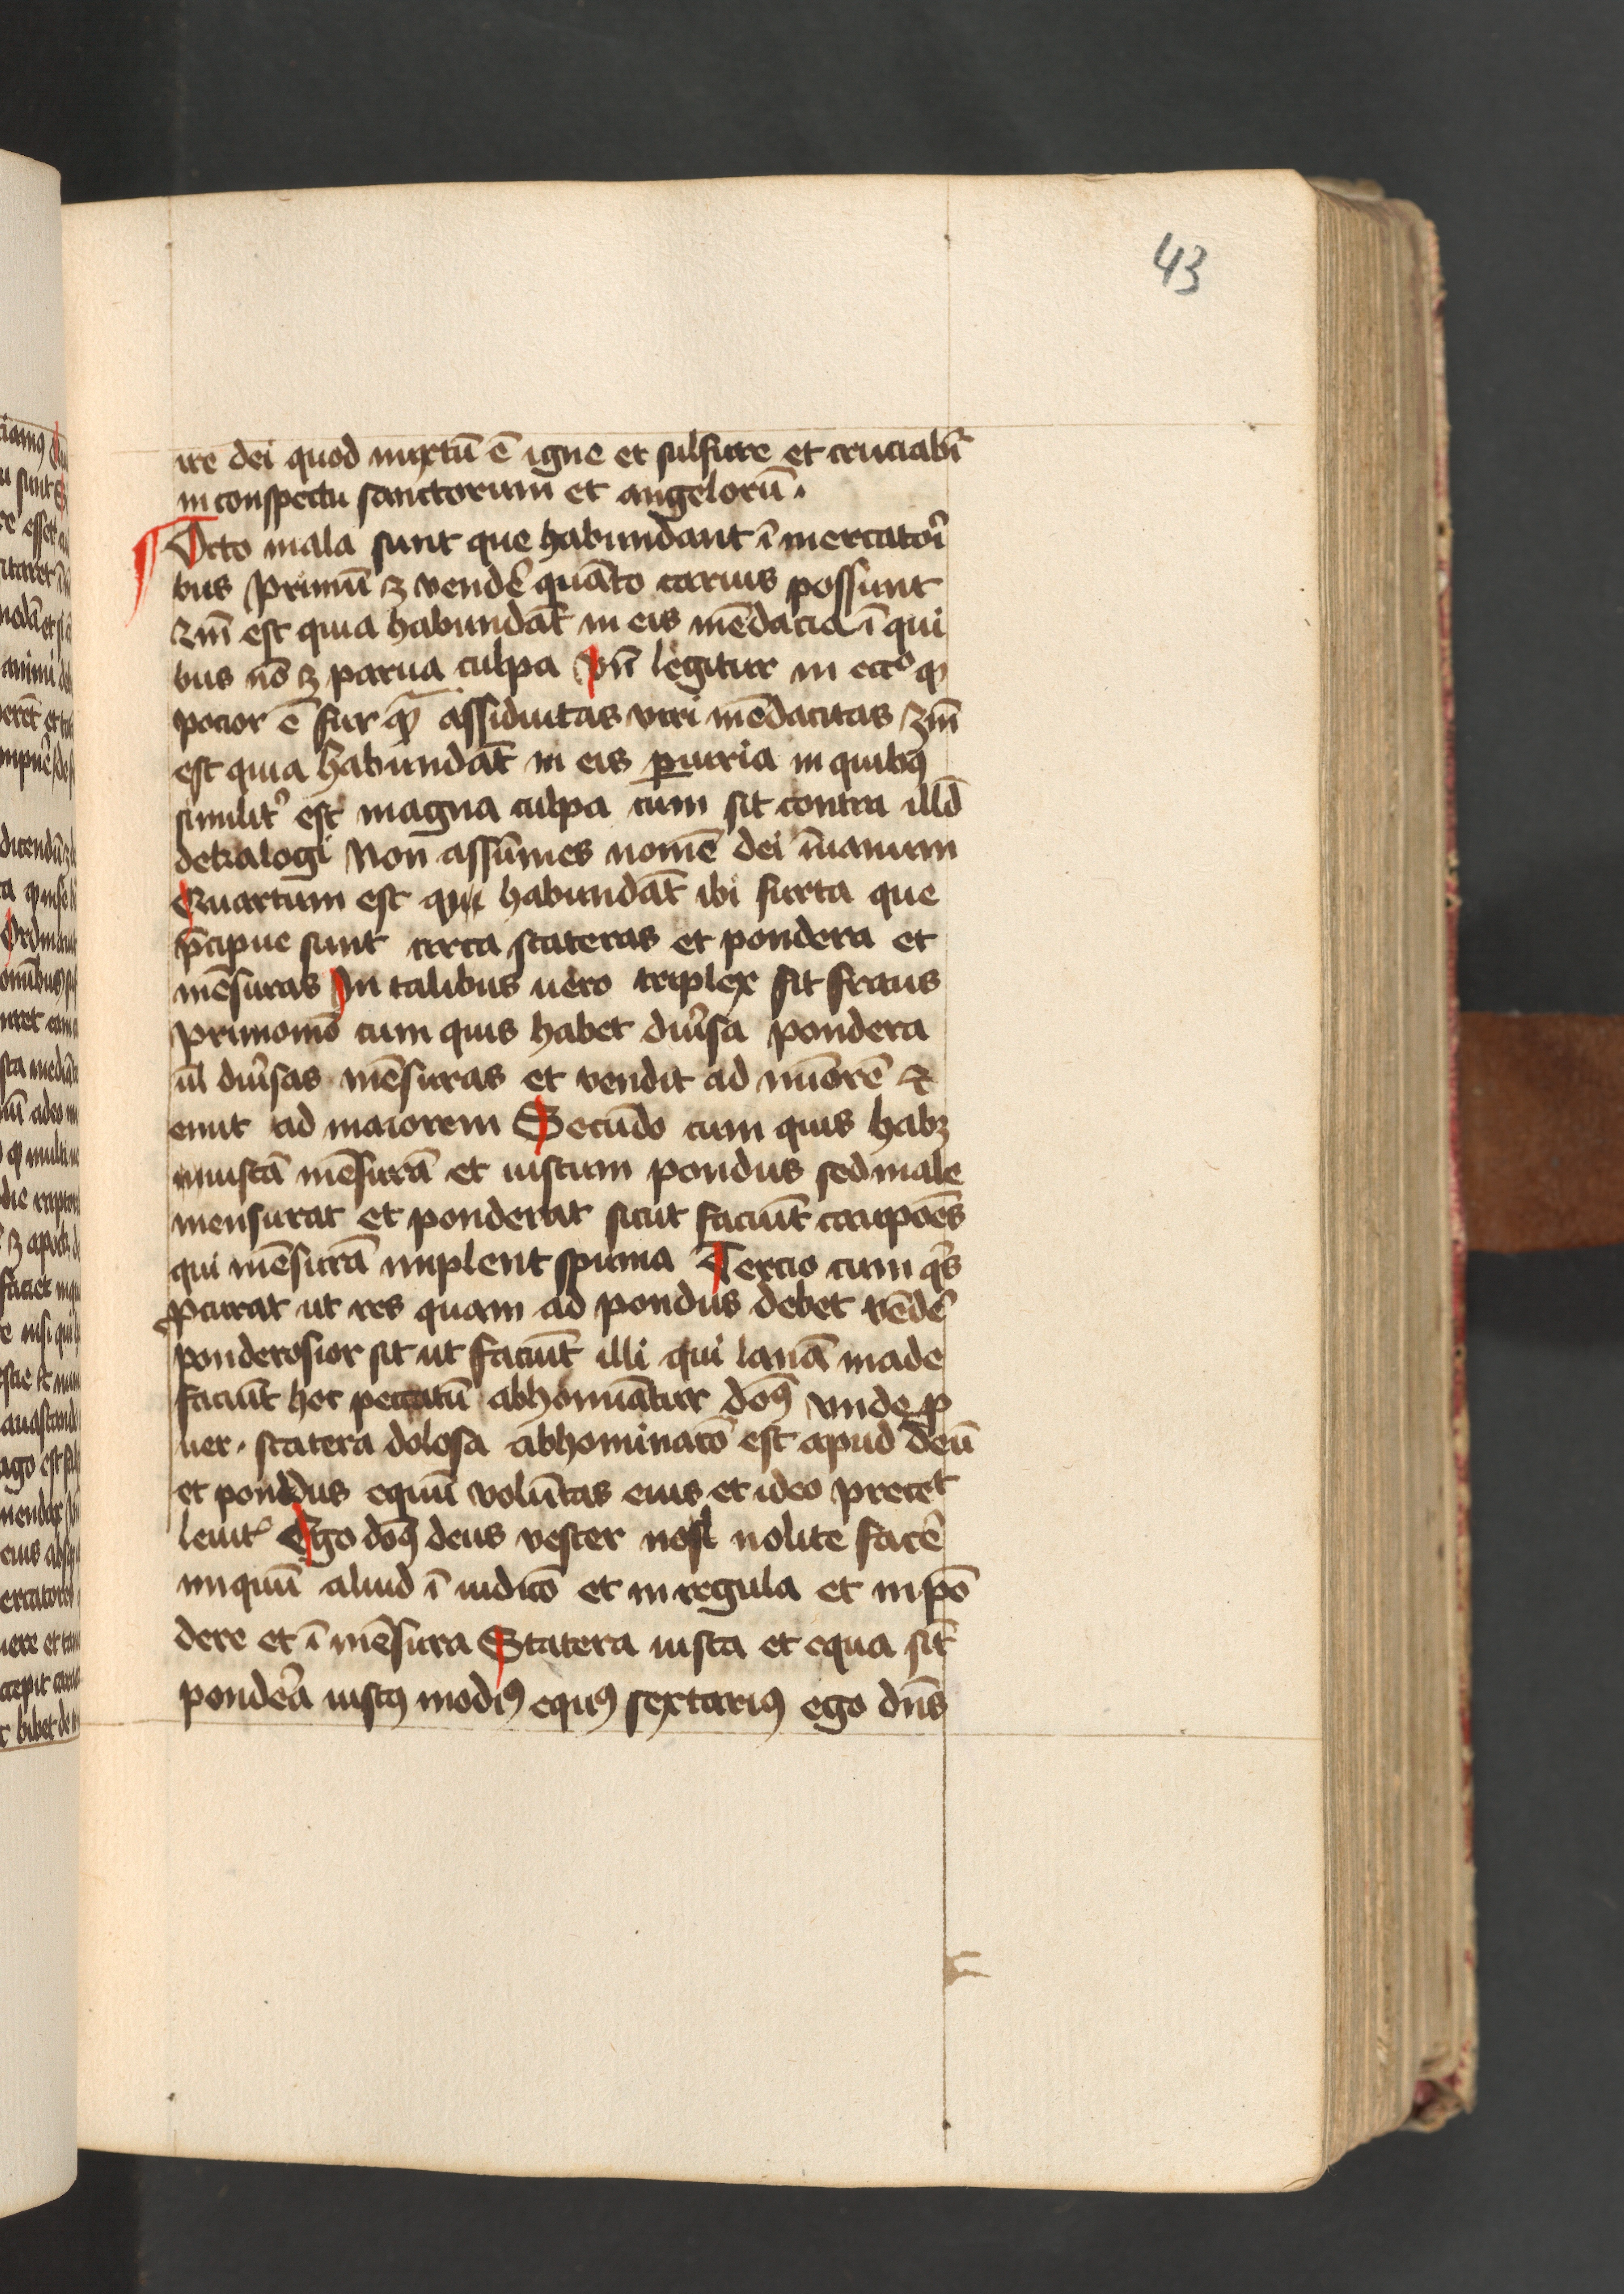 43
ire dei quod mixtū ē igne et sulfure et cruciabr̄
in conspectu sanctorum et angelorū .
Octo mala sunt que habundant ī mercatori
bus Primū ꝫ vendē quāto carius possunt
2m̄ est quia habundāt in eis mēdacia ī qui
bus nō ꝫ parua culpa Vn̄ legitur in ecc͛o ꝙ
pocior ē fur ꝙ̄ assiduitas viri mēdacitas 3m̄
est quia habundāt in eis ꝑiuria in quibꝰ
similit͛ est magna culpa cum sit contra illd̄
dekalogi Non assūmes nomē dei īuanum
Quartum est quia habundāt ibi furta que
p̄cipue sunt circa stateras et pondera et
mēsuras In talibus uero triplex fit fraus
Primomō cum quis habet diu͛sa pondera
ul̄ diu͛sas mēsuras et vendit ad minorē &
emit ad maiorem Secūdo cum quis habꝫ
iniustā mēsurā et iustum pondus sed male
mensurat et ponderat sicut faciūt caupoēs
qui mēsurā implent spuma Tercio cum qͥs
ꝓcurat ut res quam ad pondus debet vēdē
ponderosior sit ut faciūt illi qui lanā made
faciūt hoc peccatū abhomīatur don̄ꝰ vnde ꝓ
uer . statera dolosa abhominacō est apud deū
et pondus equū volūtas eius et ideo precet͛
leuit͛ Ego don̄ꝰ deus vester nolite facē
iniquū aliud ī iudicō et in regula et in pō
dere et ī mēsura Statera iusta et equa sīt
pondēa iustꝰ modiꝰ equꝰ sextariꝰ ego dn̄s